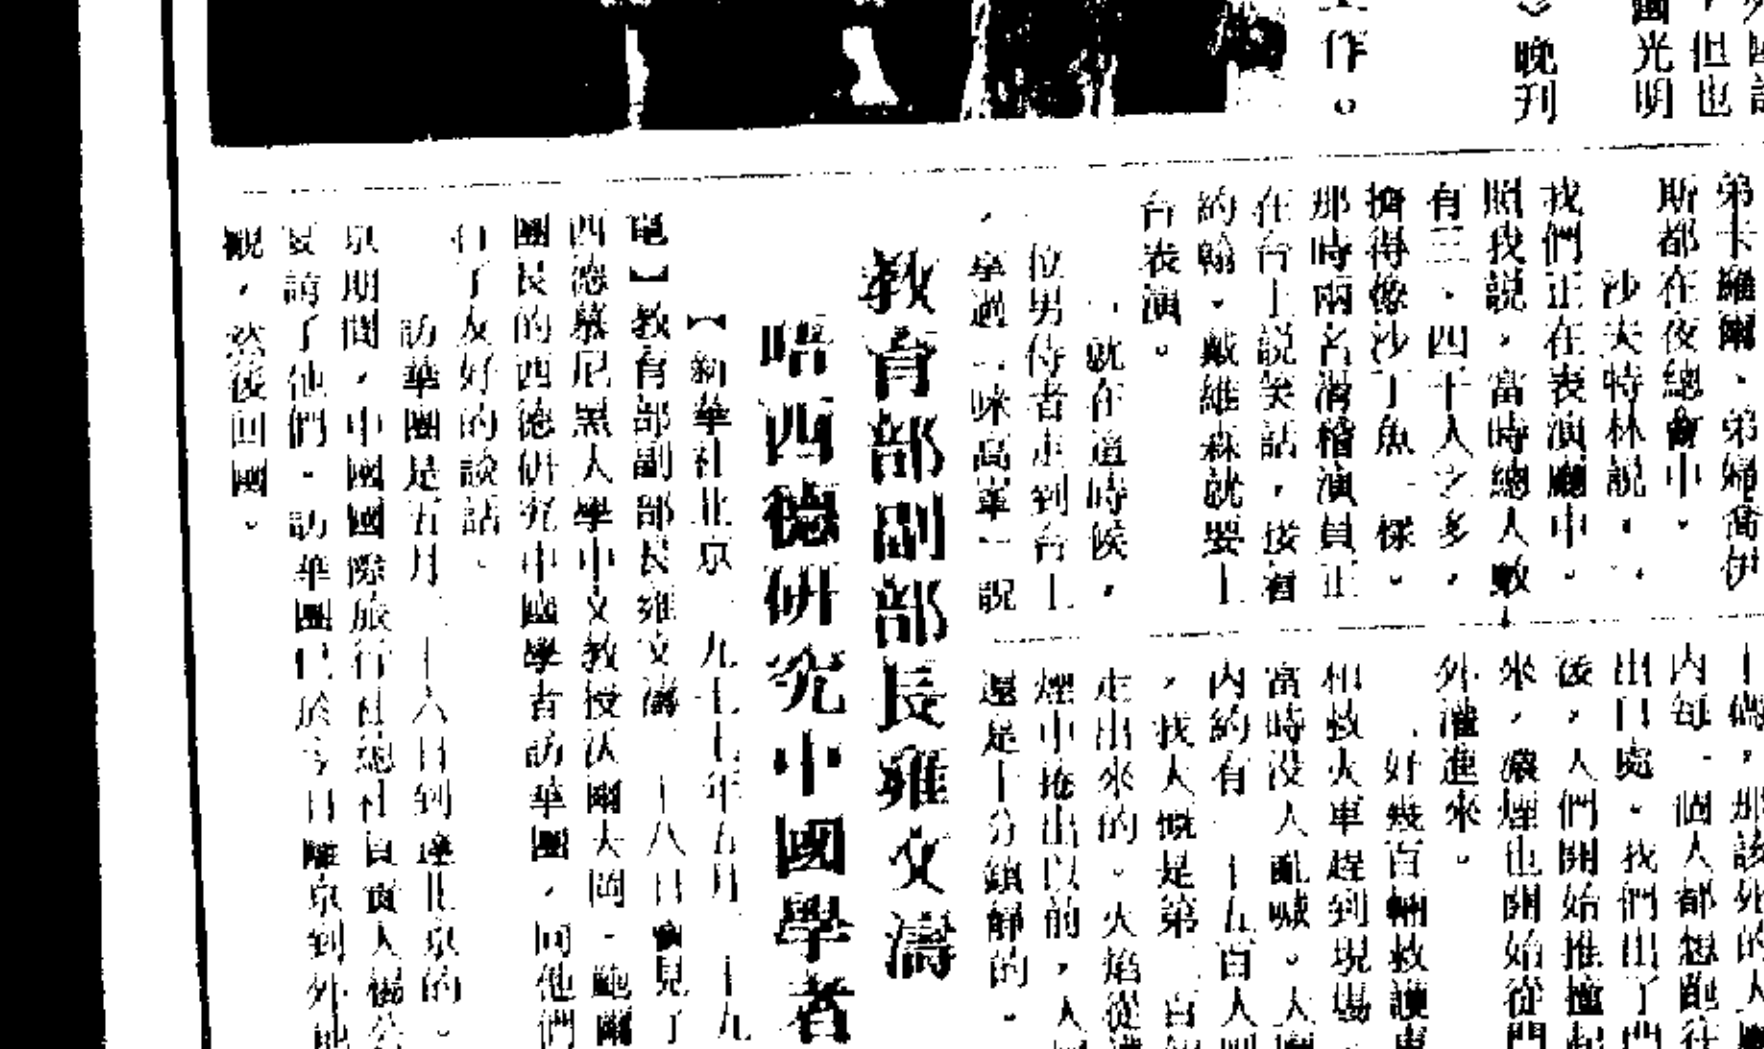 作。
》晚刊
國光明
但也
弟卡羅爾、弟婦喬伊
斯都在夜總會中。
沙夫特林說
我們正在表演廳中。
照我說，當時總人數
有三、四千人之多，
擠得像沙丁魚一樣。
那時兩名滑稽演員正
在台上說笑話，接着
約翰·戴維森就要上
台表演。
就在這時候，
位男侍者走到台上
，拿過一味高單一說
十碼，那該死的人
內每一個人都想跑往
出口處。我們出了門
後，人們開始推撞起
來，濃煙也開始從門
外灌進來。
好幾百輛救護車
和救火車趕到現場，
當時沒人亂喊。
內約有一千五百人
，我大概是第二百
走出來的。火焰從
煙中捲出以前，人
還是十分鎮靜的。
教育部副部長雍文濤
晤西德研究中國學者
【新華社北京一九七七年五月二十九
電】教育部副部長雍文濤二十八日會見了
西德慕尼黑大學中文教授沃爾夫岡·鮑爾
團長的西德研究中國學者訪華團，同他們
行了友好的談話。
訪華團是五月二十六日到達北京的。
京期間，中國國際旅行社總社負責人楊公
宴請了他們。訪華團已於今日離京到外地
觀，然後回國。